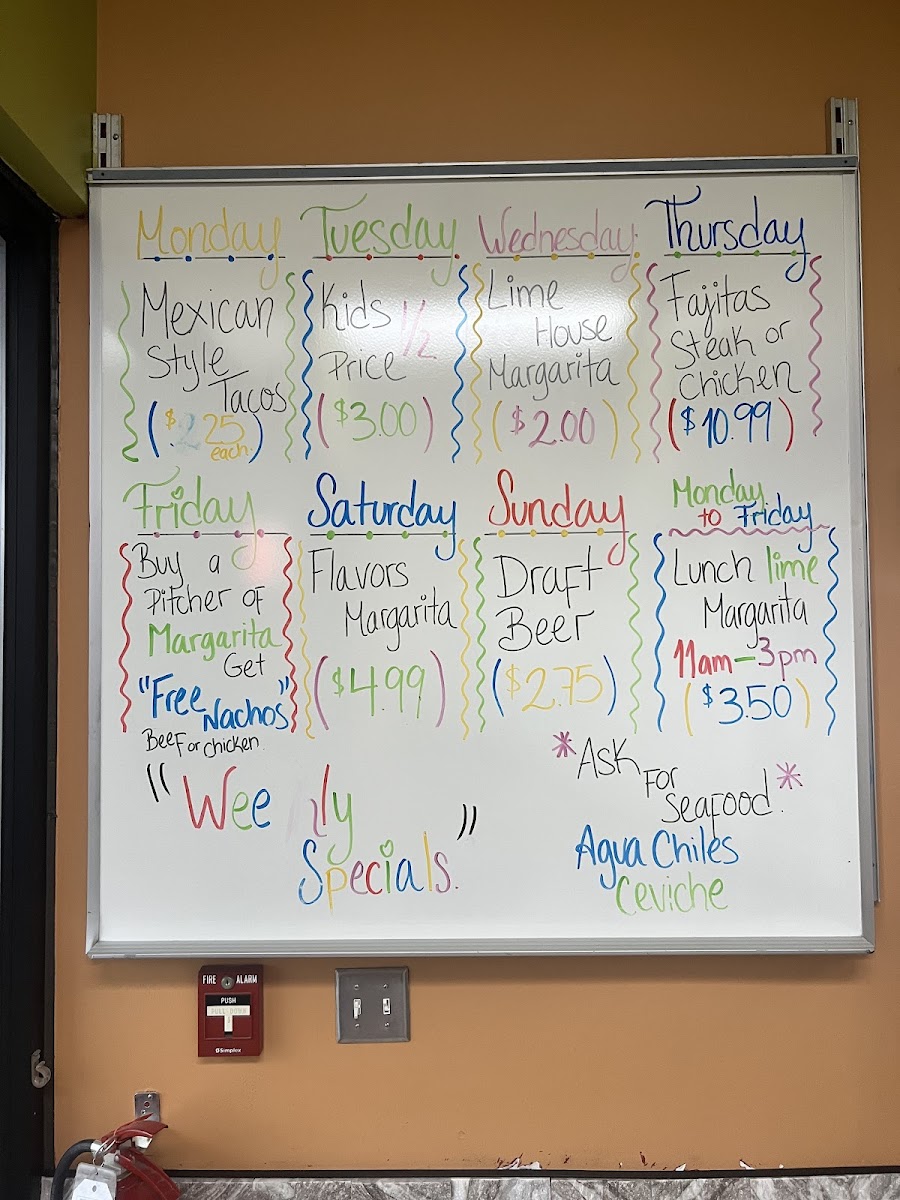 Monday
Mexican
Style
Tacos
($2.25
each.)
Tuesday
Kids 1/2
Price
($3.00)
Wednesday
Lime
House
Margarita
($2.00)
Thursday
Fajitas
Steak or
Chicken
($10.99)
Friday
Buy a
Pitcher of
Margarita
Get
"Free
Nachos"
Beef or chicken.
Saturday
Flavors
Margarita
($4.99)
Sunday
Draft
Beer
($2.75)
Monday
to Friday
Lunch lime
Margarita
11am-3pm
($3.50)
"Weekly
Specials."
*Ask
For
Seafood.*
Agua Chiles
Ceviche
FIRE ALARM
PUSH
PULL DOWN
Simplex